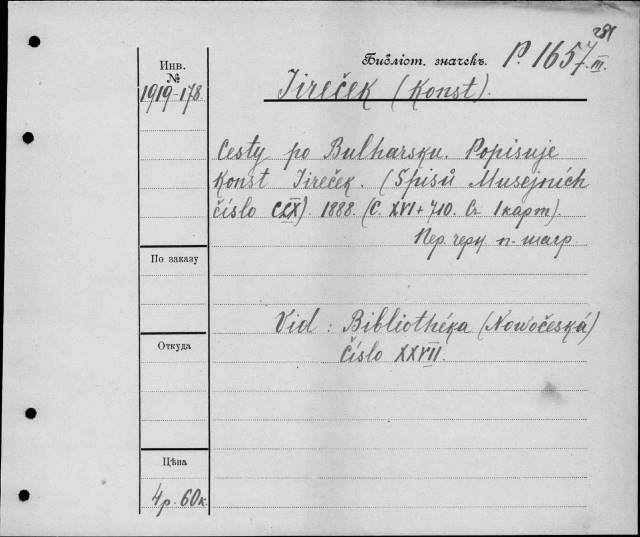 281
Инв.
№
1919-178
Библіот. значекъ. P. 1657.III.
Jireček (Konst).
Cesty po Bulharsku. Popisuje
Konst Jireček. (Spisů Musejních
číslo CLX). 1888. (C. XVI + 710. Съ 1 карт).
Пер. чери. п. шагр.
По заказу
Vid: Bibliothéka (Nowočeská)
Číslo XXVII.
Откуда
Цѣна
4 р. 60 к.